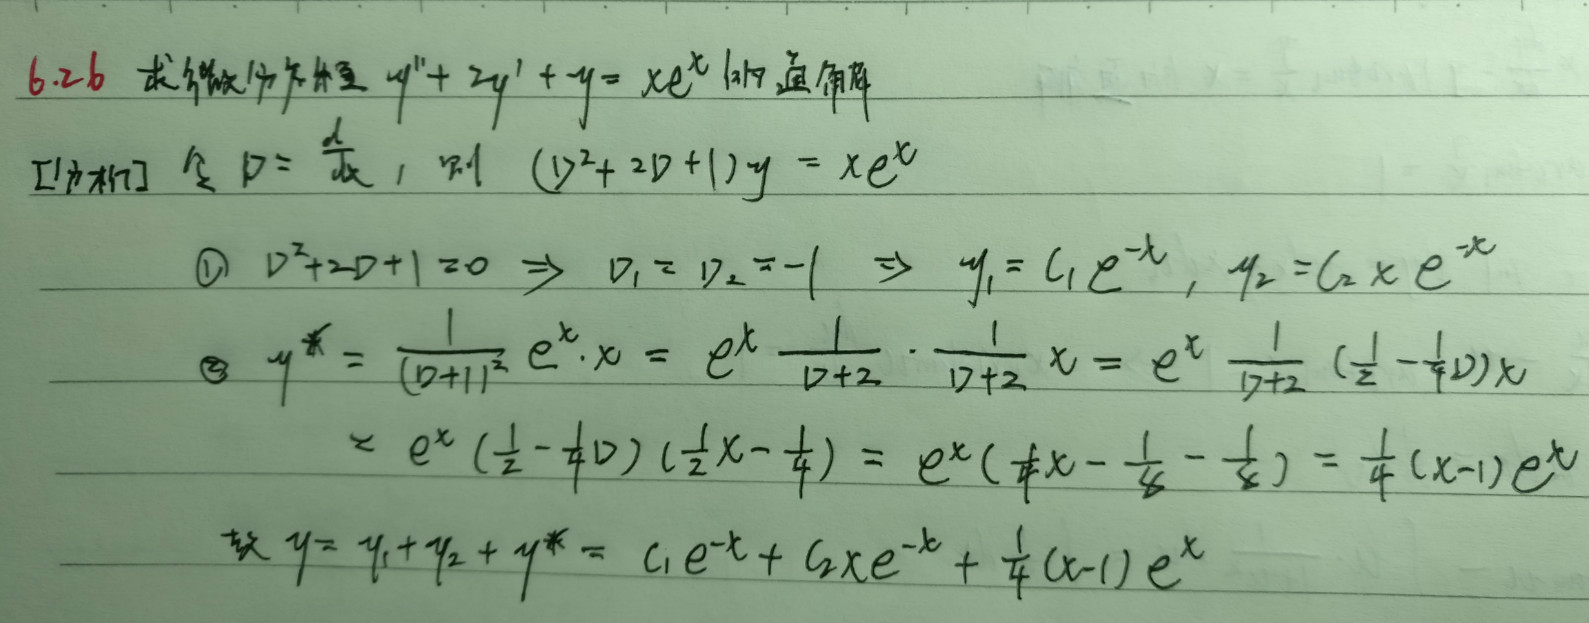 6.26 求微分方程 y''+2y'+y=xe^x 的通解
[分析] 令 D=d/dx, 则 (D²+2D+1)y = xe^x
① D²+2D+1=0 ⇒ D₁=D₂=-1 ⇒ y₁=C₁e^{-x}, y₂=C₂xe^{-x}
② y* = 1/(D+1)² e^x·x = e^x 1/(D+2) · 1/(D+2) x = e^x 1/(D+2) (1/2-1/4D)x
= e^x (1/2-1/4D)(1/2x-1/4) = e^x(1/4x-1/8-1/8) = 1/4(x-1)e^x
故 y=y₁+y₂+y* = C₁e^{-x}+C₂xe^{-x}+1/4(x-1)e^x